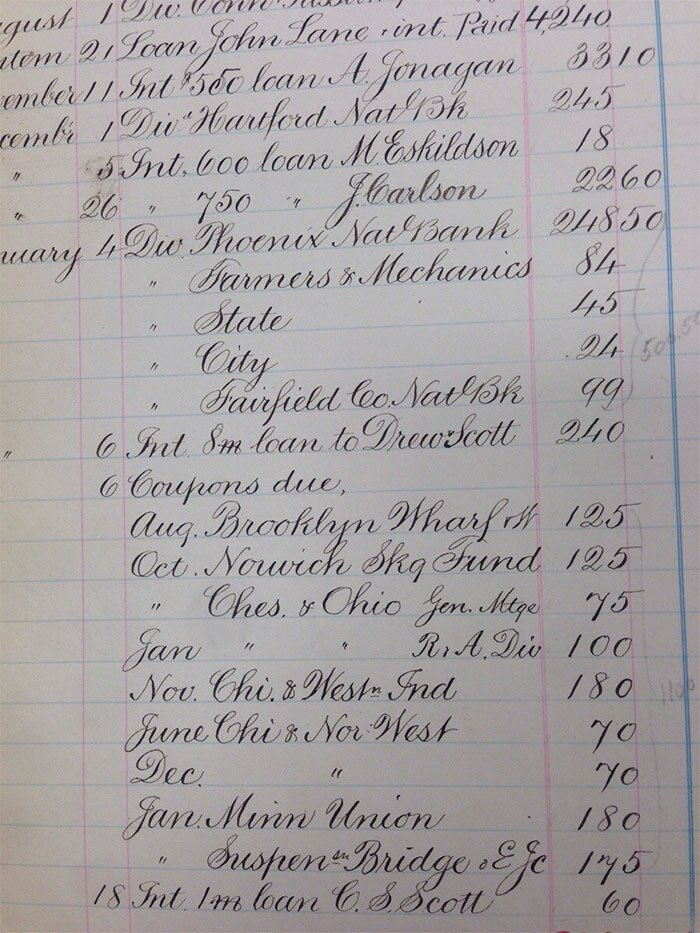 gust 1 Div. Conn.
tem 21 Loan John Lane & int. Paid 4,240
ember 11 Int $550 loan A. Jonagan 33 10
cembr 1 Div Hartford Natl Bk 245
" 5 Int. 600 loan M. Eskildson 18
" 26 " 750 " J. Carlson 22 60
nuary 4 Div Phoenix Natl Bank 248 50
" Farmers & Mechanics 84
" State 45
" City 24
" Fairfield Co. Natl Bk 99
" 6 Int 8m loan to Drew Scott 240
6 Coupons due,
Aug. Brooklyn Wharf & W 125
Oct. Norwich Skg Fund 125
" Ches. & Ohio Gen. Mtge 75
Jan " " R. & A. Div 100
Nov. Chi. & Westn Ind 180
June Chi & Nor West 70
Dec. " 70
Jan. Minn Union 180
" Suspensn Bridge & E Jc 175
18 Int 1m loan C. S. Scott 60